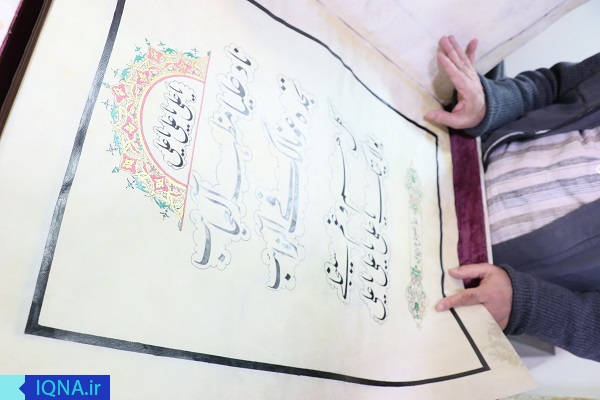 یا علی یا علی یا علی
ناد علیا مظهر العجائب
تجده عونا لک فی النوائب
کل هم و غم سینجلی
بولایتک یا علی یا علی یا علی
IQNA.ir